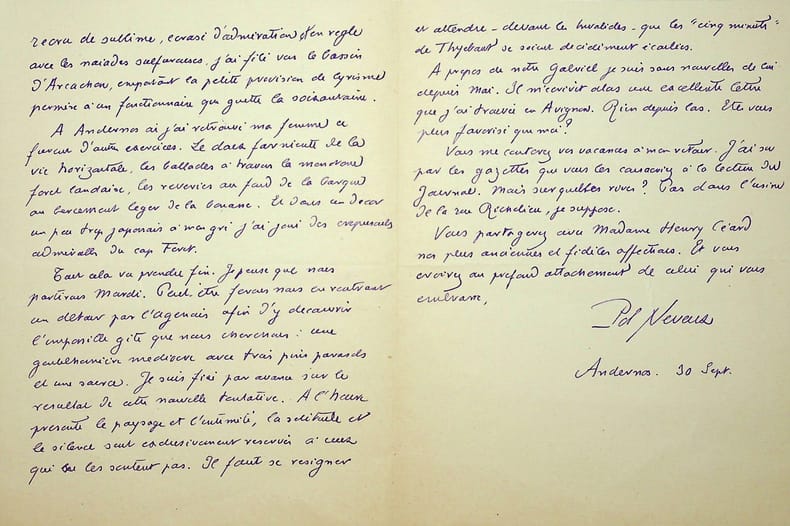 recru de sublime, écrasé d'admiration et en règle
avec les naïades sulfureuses, j'ai filé vers le bassin
d'Arcachon, emportant la petite provision de lyrisme
permise à un fonctionnaire qui guette la soixantaine.
A Andernos où j'ai retrouvé ma femme ce
furent d'autres exercices. Le doux farniente de la
vie horizontale, les ballades à travers la monotone
forêt landaise, les rêveries au fond de la barque
au bercement léger de la houle. Et dans un décor
un peu trop japonais à mon gré j'ai joui des crépuscules
admirables du cap Ferret.
Tout cela va prendre fin. Je pense que nous
partirons Mardi. Peut-être ferons nous en rentrant
un détour par l'Agenais afin d'y découvrir
l'impossible gîte que nous cherchons : une
gentilhommière médiocre avec trois pins parasols
et une source. Je suis fixé par avance sur le
résultat de cette nouvelle tentative. A l'heure
présente le paysage et l'intimité, la solitude et
le silence sont exclusivement réservés à ceux
qui ne les sentent pas. Il faut se résigner
et attendre - devant les Invalides - que les "cinq minutes"
de Thyébaut se soient décidément écoulées.
A propos de notre Gabriel je suis sans nouvelles de lui
depuis Mai. Il m'écrivit alors une excellente lettre
que j'ai trouvée en Avignon. Rien depuis lors. Etes vous
plus favorisé que moi?
Vous me conterez vos vacances à mon retour. J'ai su
par les gazettes que vous les consacriez à la lecture du
Journal. Mais sur quelles rives? Pas dans l'usine
de la rue Richelieu, je suppose.
Vous partagerez avec Madame Henry Céard
nos plus anciennes et fidèles affections. Et vous
croirez au profond attachement de celui qui vous
embrasse,
Pol Neveux
Andernos. 30 Sept.